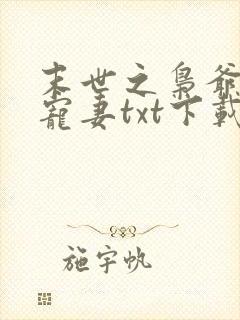 末世之梟爺
寵妻txt下載
施宇帆